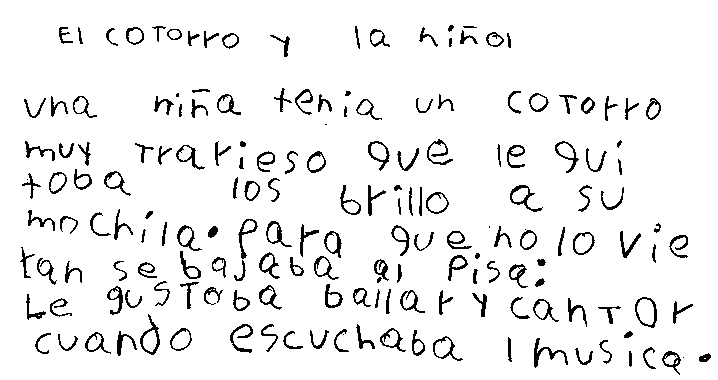 El cotorro y la niña
una niña tenia un cotorro
muy trarieso que le qui
toba los brillo a su
mochila. para que no lo vie
ran se bajaba al Pisa:
Le gustoba bailar y cantor
cuando escuchaba l musica.